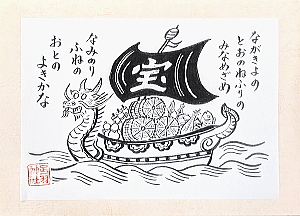 ながきよの
とおのねふりの
みなめざめ
宝
なみのり
ふねの
おとの
よきかな